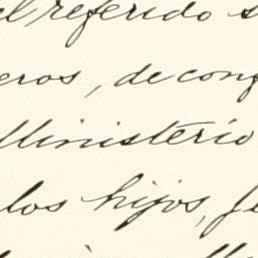 el referido s
eros, de conf
Ministerio
los hijos, fe